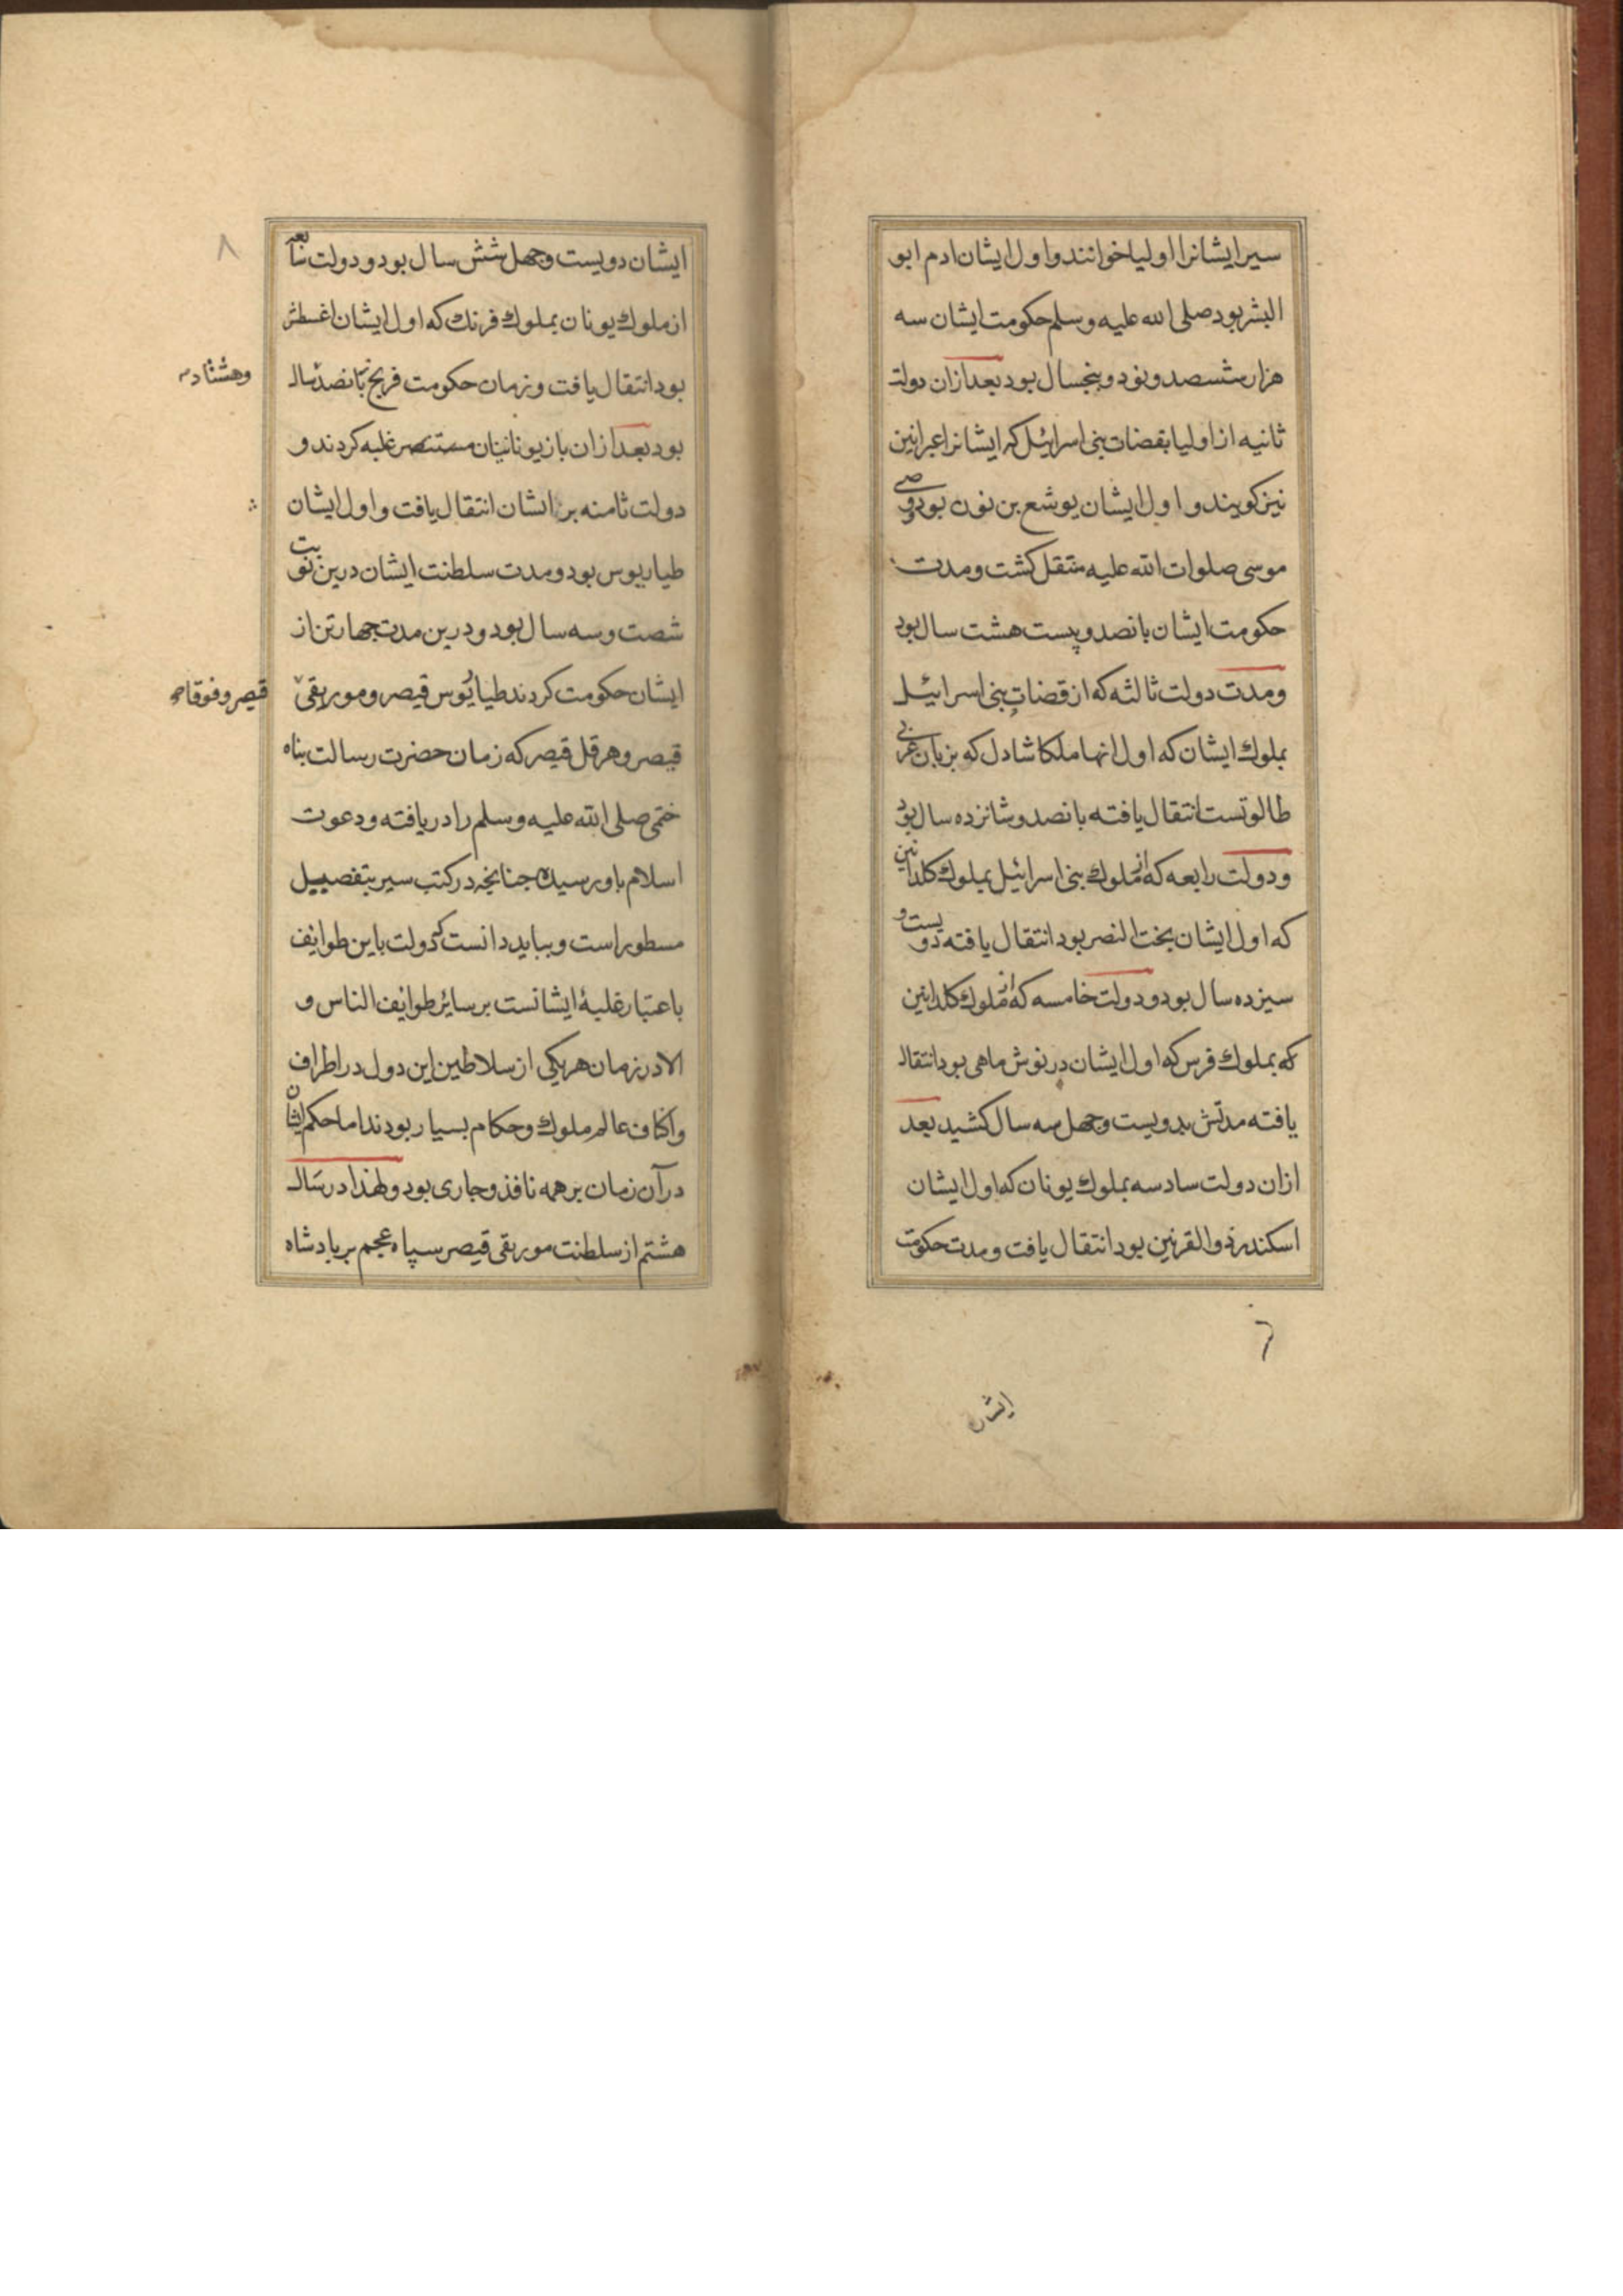 سیر ایشانرا اولیا خوانند و اول ایشان ادم ابو
البشر بود صلی الله علیه وسلم حکومت ایشان سه
هزار ششصد و نود و پنجسال بود بعد ازان دولت
ثانیه از اولیا بقضات بنی اسرائیل که ایشانرا عبرانین
نیز کویند و اول ایشان یوشع بن نون بود وصی
موسی صلوات الله علیه منتقل کشت و مدت
حکومت ایشان بانصد و بیست هشت سال بود
و مدت دولت ثالثه که از قضات بنی اسرائیل
بملوك ایشان که اول انها ملکا شادل که بزبان عربی
طالوتست انتقال یافته بانصد و شانزده سال بود
و دولت رابعه که از ملوك بنی اسرائیل بملوك کلدانین
که اول ایشان بخت النصر بود انتقال یافته دویست و
سیزده سال بود و دولت خامسه که از ملوك کلدانین
که بملوك فرس که اول ایشان درنوش ماهی بود انتقال
یافته مدتش بدویست و جهل سه سال کشید بعد
ازان دولت سادسه بملوك یونان که اول ایشان
اسکندر ذوالقرنین بود انتقال یافت و مدت حکومت
ایشان
۸
ایشان دویست و جهل شش سال بود و دولت سابعه
از ملوك یونان بملوك فرنك که اول ایشان اغسطش
بود انتقال یافت و زمان حکومت فرنج بانصد سال
وهشتاد
بود بعد ازان باز یونانیان مستنصر غلبه کردند و
دولت ثامنه بر ایشان انتقال یافت و اول ایشان
طیاریوس بود و مدت سلطنت ایشان درین نوبت
شصت و سه سال بود و درین مدت جهار تن از
ایشان حکومت کردند طیابوس قیصر و موریقی
قیصر و فوقاص
قیصر و هرقل قیصر که زمان حضرت رسالت بناه
ختمی صلی الله علیه وسلم را دریافته و دعوت
اسلام باو رسیده جنانجه در کتب سیر بتفصیل
مسطور است و بباید دانست که دولت باین طوایف
باعتبار غلبهٔ ایشانست بر سائر طوایف الناس و
الا در زمان هر یکی از سلاطین این دول در اطراف
و اکناف عالم ملوك و حکام بسیار بودند اما حکم ایشان
در آن زمان بر همه نافذ و جاری بود و لهذا در سال
هشتم از سلطنت موریقی قیصر سپاه عجم بر بادشاه